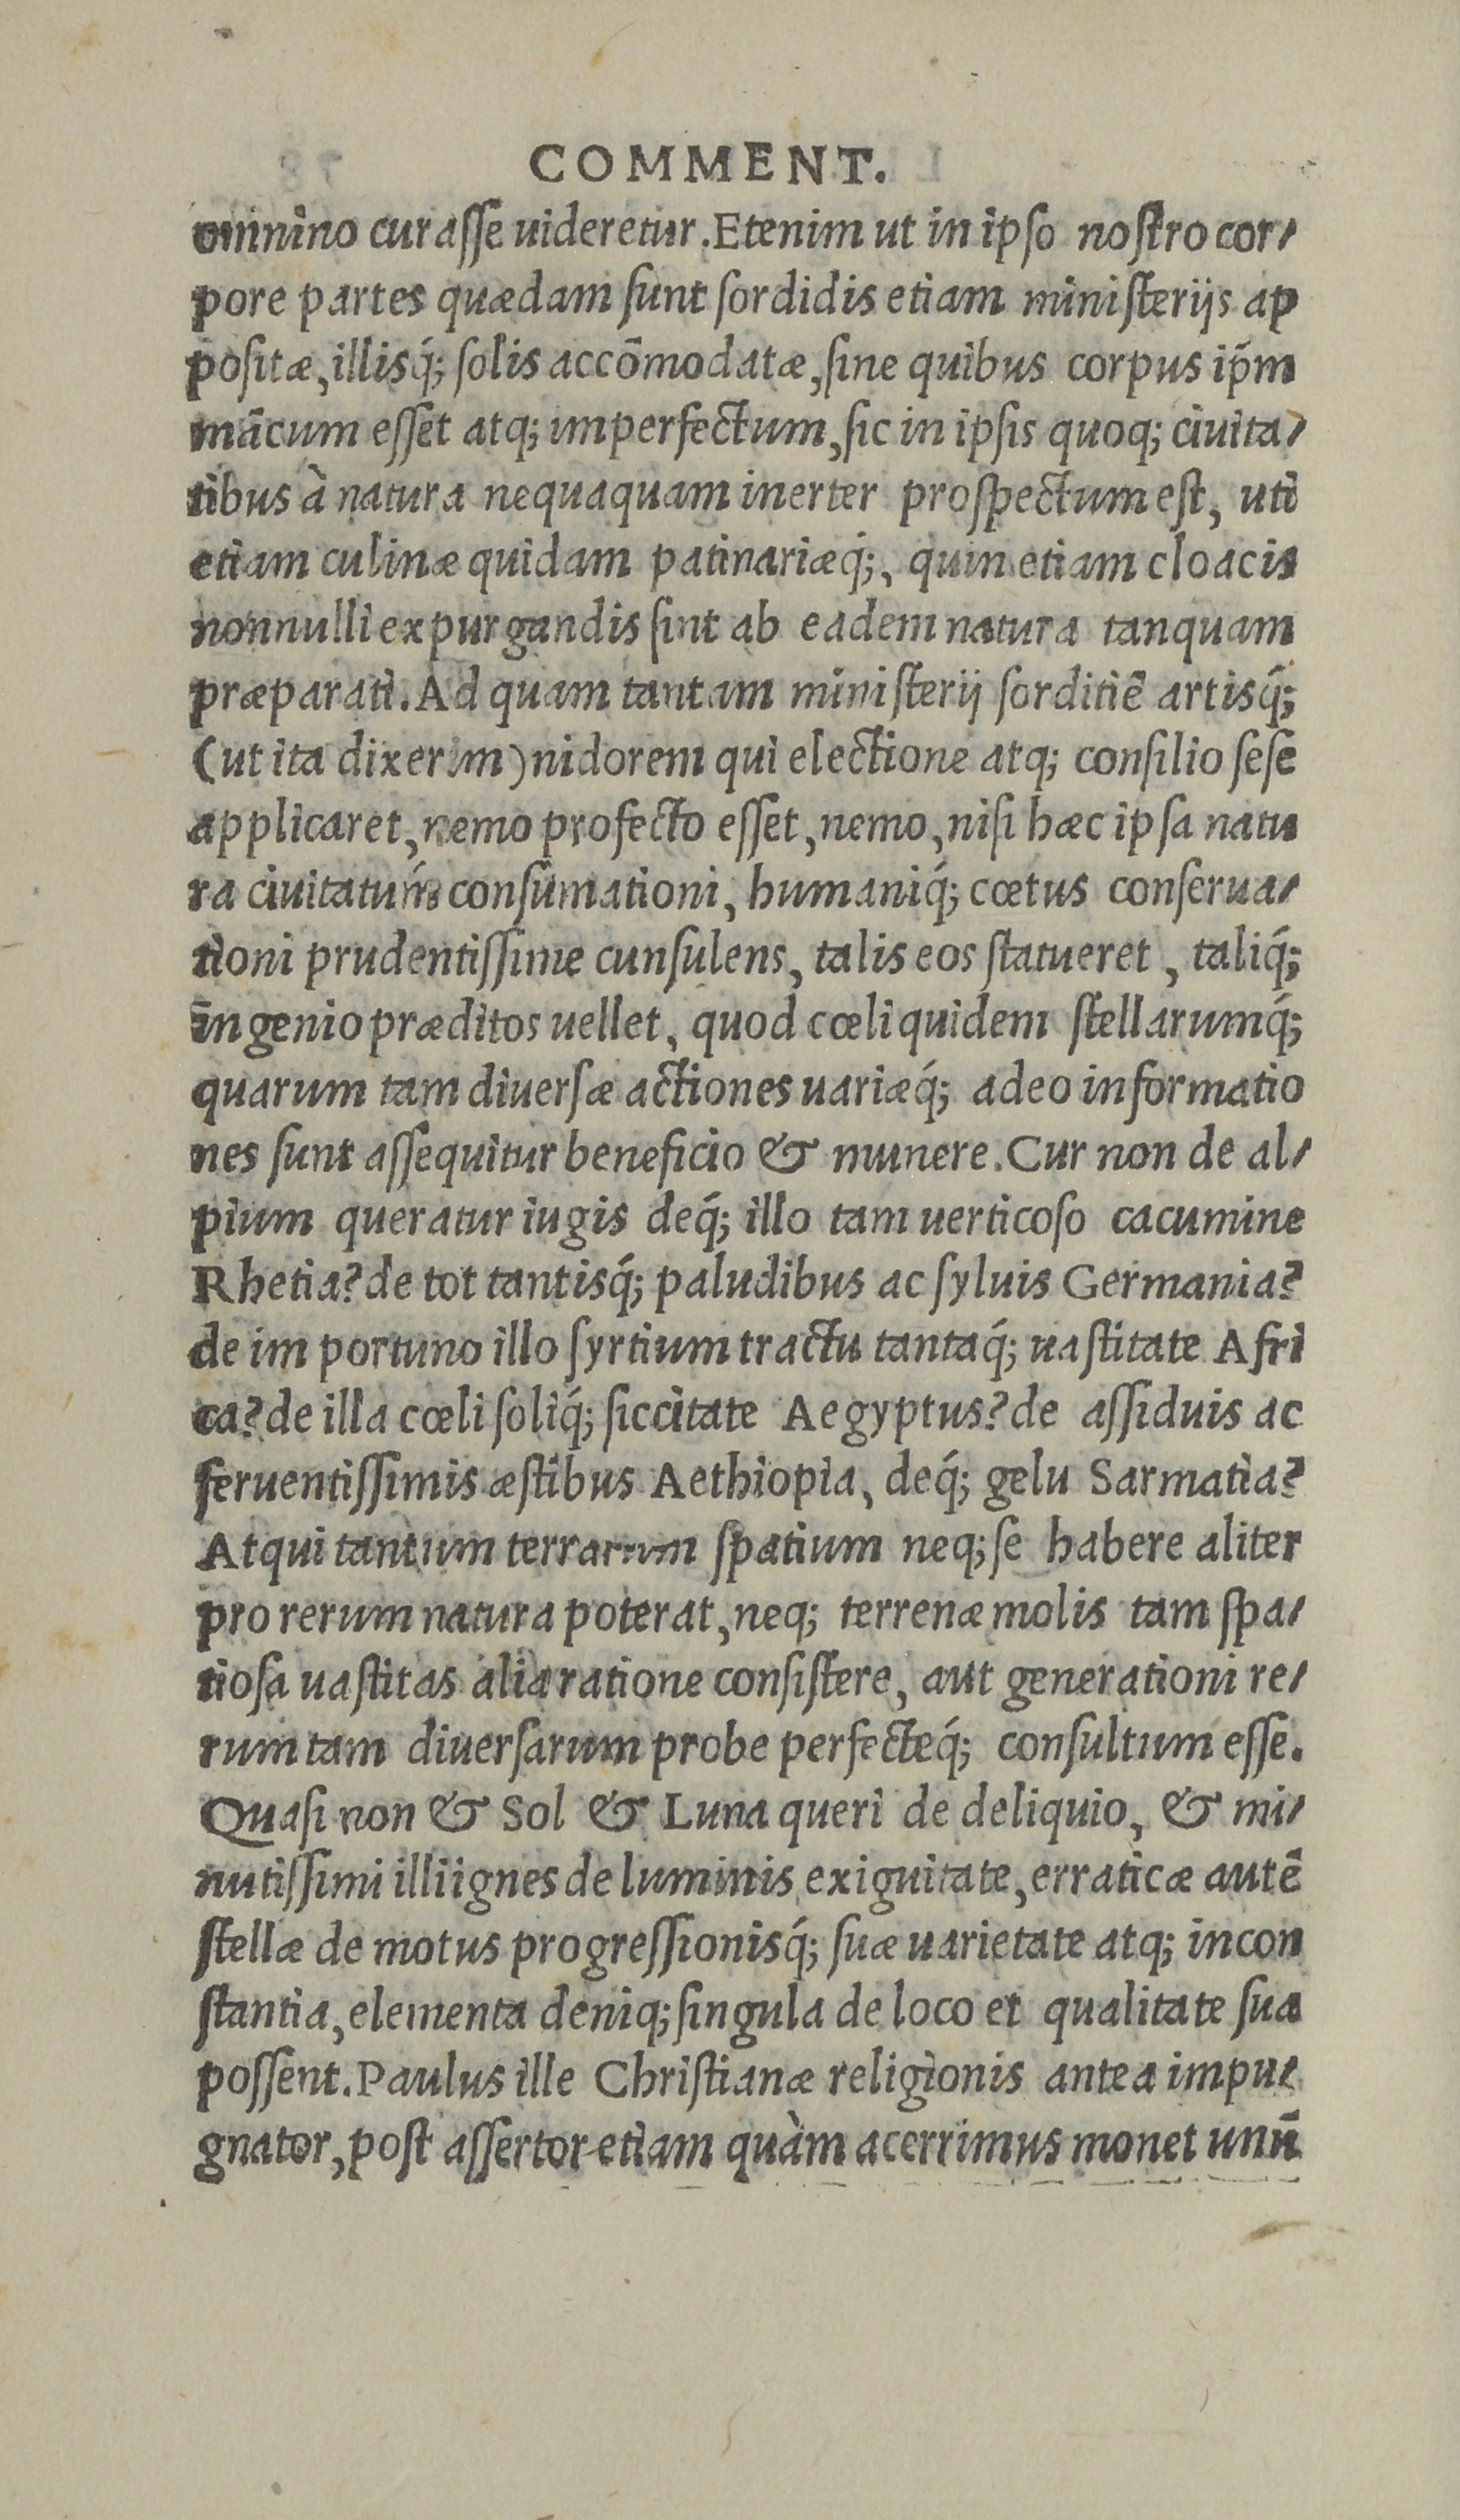 COMMENT.
omnino curasse uideretur. Etenim ut in ipso nostro cor-
pore partes quædam sunt sordidis etiam ministerijs ap
positæ, illisq́; solis accōmodatæ, sine quibus corpus ip̄m
mācum esset atq; imperfectum, sic in ipsis quoq; ciuita-
tibus à natura nequaquam inerter prospectum est, uti
etiam culinæ quidam patinariæq́;, quin etiam cloacis
nonnulli expurgandis sint ab eadem natura tanquam
præparati. Ad quam tantam ministerij sorditiē artisq́;
(ut ita dixerim) nidorem qui electione atq; consilio sese
applicaret, nemo profecto esset, nemo, nisi hæc ipsa natu
ra ciuitatum consūmationi, humaniq́; cœtus conserua-
tioni prudentissime cunsulens, talis eos statueret, taliq́;
ingenio præditos uellet, quod cœli quidem stellarumq́;
quarum tam diuersæ actiones uariæq́; adeo informatio
nes sunt assequitur beneficio & munere. Cur non de al-
pium queratur iugis deq́; illo tam uerticoso cacumine
Rhetia? de tot tantisq́; paludibus ac syluis Germania?
de importuno illo syrtium tractu tantaq́; uastitate Afri
ca? de illa cœli soliq́; siccitate Aegyptus? de assiduis ac
feruentissimis æstibus Aethiopia, deq́; gelu Sarmatia?
Atqui tantum terrarum spatium neq; se habere aliter
pro rerum natura poterat, neq; terrenæ molis tam spa-
tiosa uastitas alia ratione consistere, aut generationi re-
rum tam diuersarum probe perfecteq́; consultum esse.
Quasi non & Sol & Luna queri de deliquio, & mi-
nutissimi illi ignes de luminis exiguitate, erraticæ autē
stellæ de motus progressionisq́; suæ uarietate atq; incon
stantia, elementa deniq; singula de loco et qualitate sua
possent. Paulus ille Christianæ religionis antea impu-
gnator, post assertor etiam quàm acerrimus monet unū